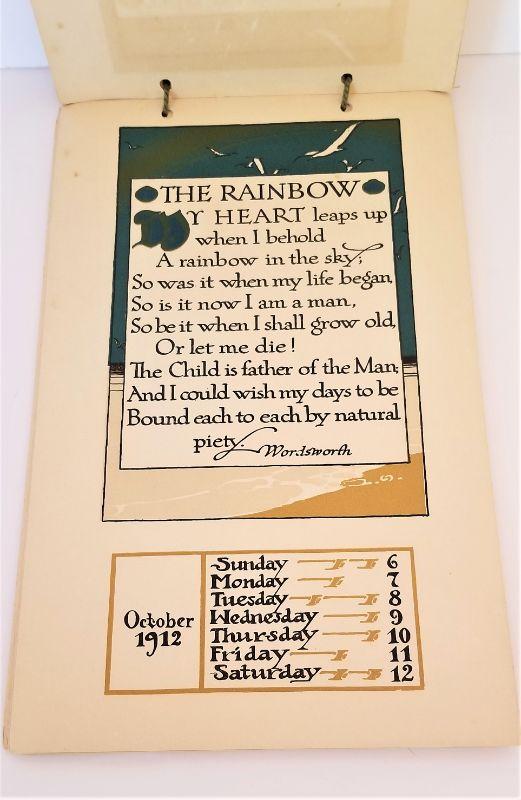 THE RAINBOW
MY HEART leaps up
when I behold
A rainbow in the sky;
So was it when my life began,
So is it now I am a man,
So be it when I shall grow old,
Or let me die!
The Child is father of the Man;
And I could wish my days to be
Bound each to each by natural
piety.
Wordsworth
October
1912
Sunday 6
Monday 7
Tuesday 8
Wednesday 9
Thursday 10
Friday 11
Saturday 12